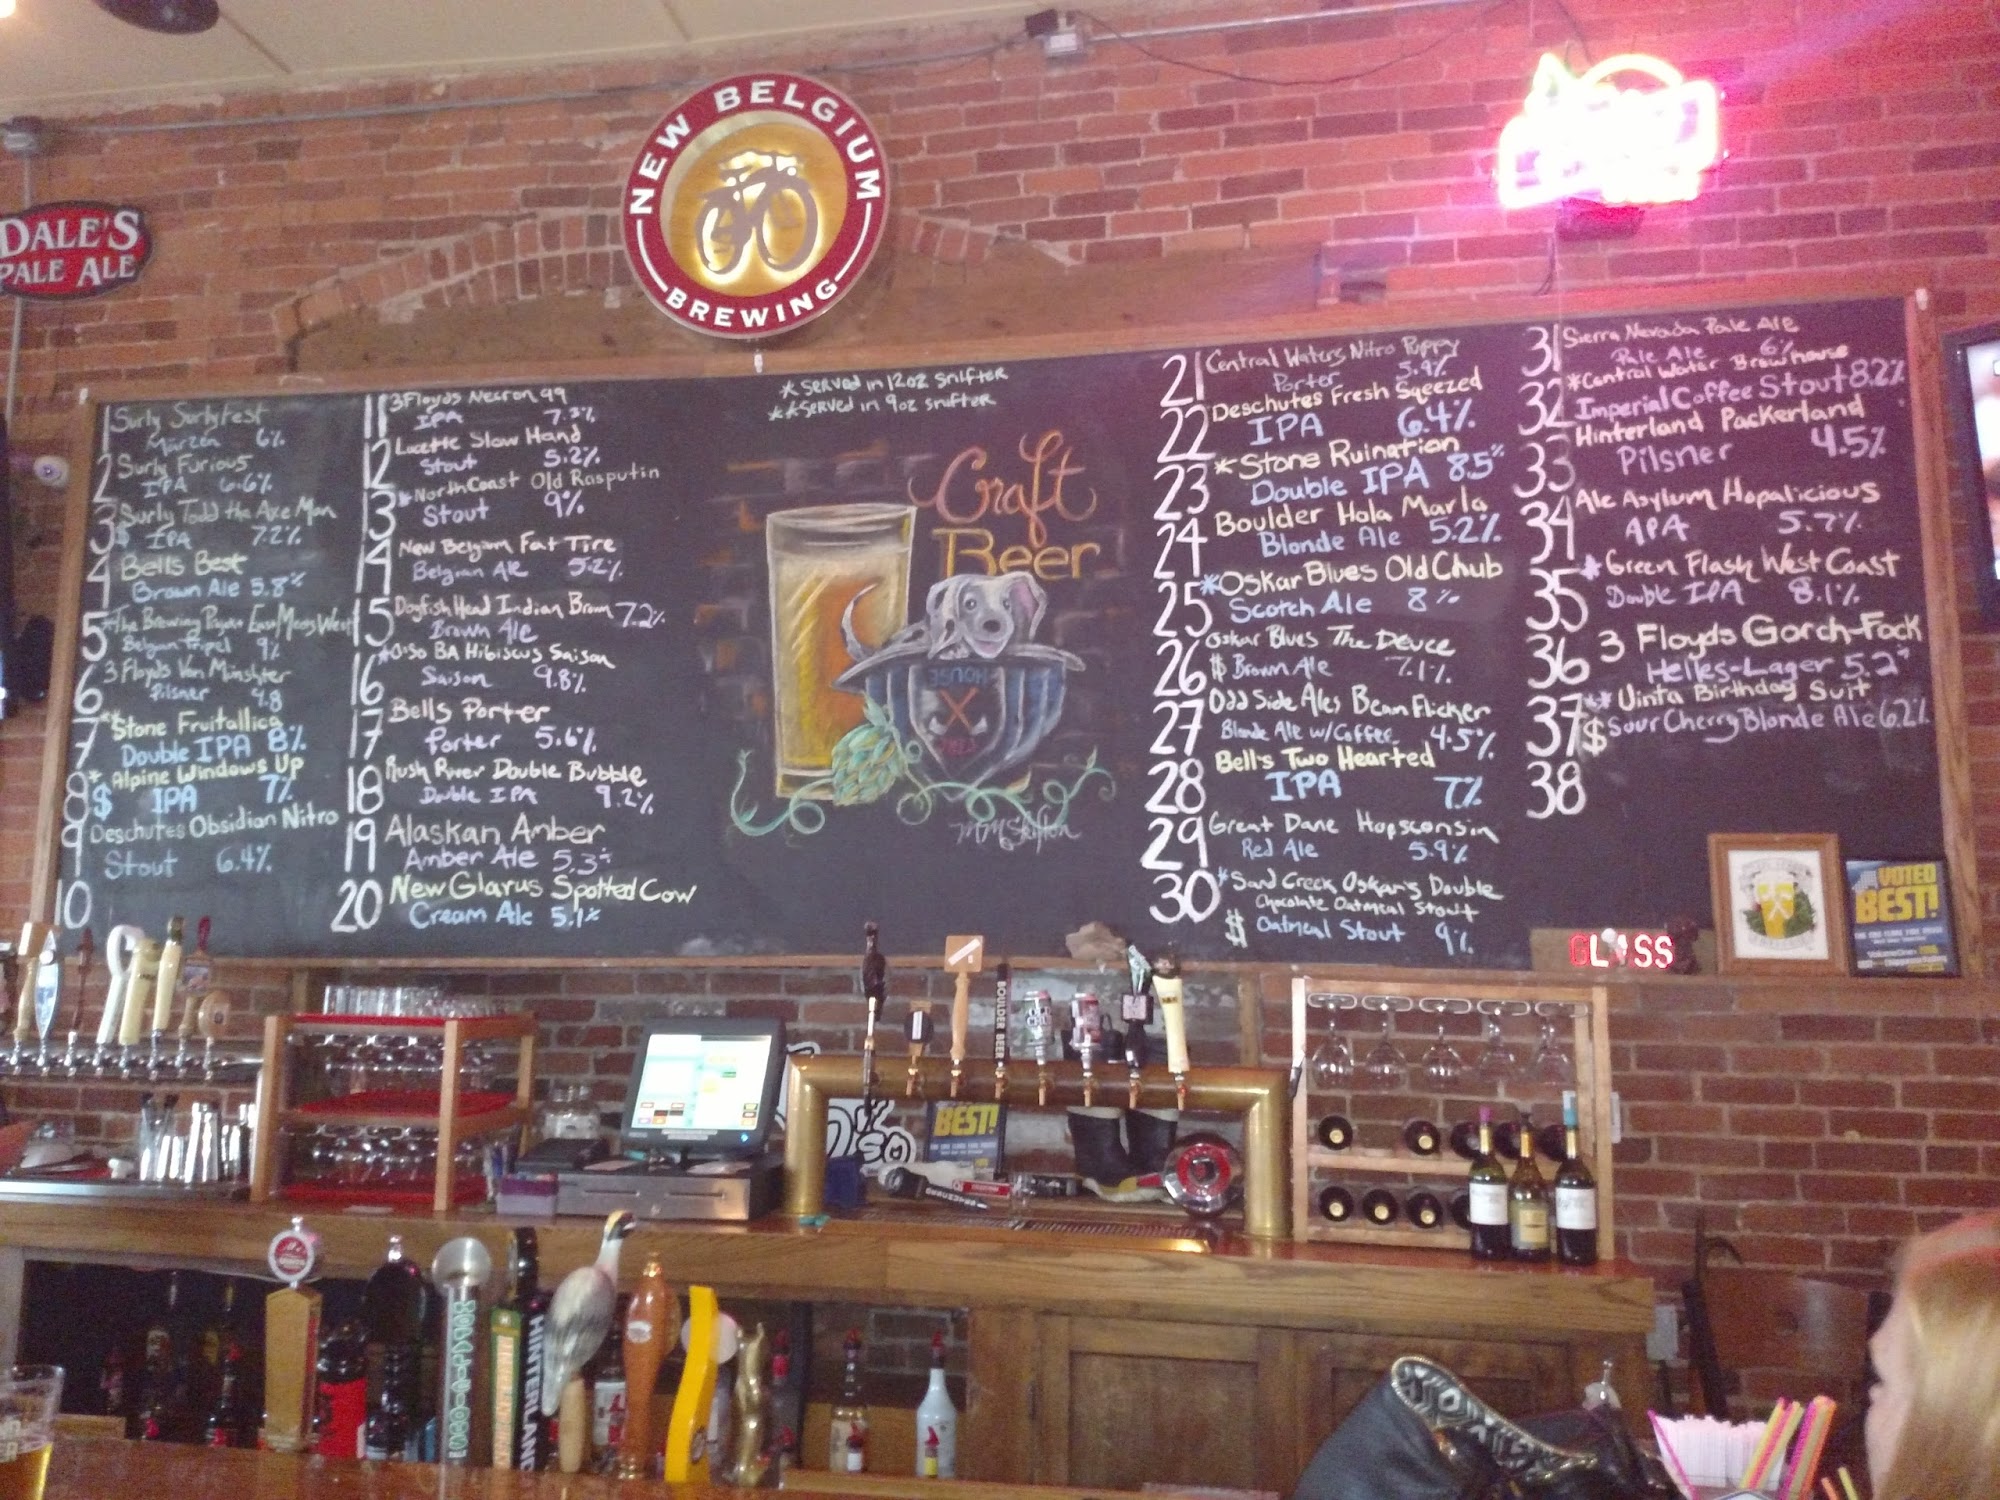 NEW BELGIUM
BREWING
DALE'S
PALE ALE
* SERVED in 12oz snifter
** SERVED in 9oz snifter
Craft
Beer
HOUSE
1 Surly SurlyFest
Märzen 6%
2 Surly Furious
IPA 6.6%
3 Surly Todd the Axe Man
$ IPA 7.2%
4 Bells Best
Brown Ale 5.8%
5 *The Brewing Projekt East Meets West
Belgian Tripel 9%
6 3 Floyds Von Münshter
Pilsner 4.8
7 **Stone Fruitallica
Double IPA 8%
8 * Alpine Windows Up
$ IPA 7%
9 Deschutes Obsidian Nitro
Stout 6.4%
10
11 3 Floyds Necron 99
IPA 7.3%
12 Lucette Slow Hand
Stout 5.2%
13 *North Coast Old Rasputin
Stout 9%
14 New Belgium Fat Tire
Belgian Ale 5.2%
15 Dogfish Head Indian Brown 7.2%
Brown Ale
16 *O'so BA Hibiscus Saison
Saison 9.8%
17 Bells Porter
Porter 5.6%
18 Rush River Double Bubble
Double IPA 9.2%
19 Alaskan Amber
Amber Ale 5.3%
20 New Glarus Spotted Cow
Cream Ale 5.1%
21 Central Waters Nitro Puppy
Porter 5.9%
22 Deschutes Fresh Sqeezed
IPA 6.4%
23 *Stone Ruination
Double IPA 8.5%
24 Boulder Hola Marla
Blonde Ale 5.2%
25 *Oskar Blues Old Chub
Scotch Ale 8%
26 Oskar Blues The Deuce
$ Brown Ale 7.1%
27 Odd Side Ales Bean Flicker
Blonde Ale w/Coffee 4.5%
28 Bell's Two Hearted
IPA 7%
29 Great Dane Hopsconsin
Red Ale 5.9%
30 *Sand Creek Oskar's Double
Chocolate Oatmeal Stout
$ Oatmeal Stout 9%
31 Sierra Nevada Pale Ale
Pale Ale 6%
32 *Central Water Brewhouse
Imperial Coffee Stout 8.2%
33 Hinterland Packerland
Pilsner 4.5%
34 Ale Asylum Hopalicious
APA 5.7%
35 *Green Flash West Coast
Double IPA 8.1%
36 3 Floyds Gorch-Fock
Helles-Lager 5.2%
37 ** Uinta Birthday Suit
$ Sour Cherry Blonde Ale 6.2%
38
GLASS
VOTED
BEST!
BEST!
BOULDER BEER
HINTERLAND